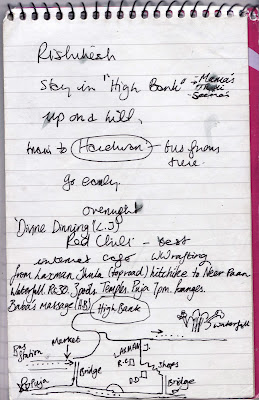 Rishikesh
Stay in "High Bank" → Mama's
up on a hill.
train to Haridwar – bus from
here.
Go early.
overnight
'Divine Dinning (L.J)
Red Chili – Best
internet cafe W W rafting
from Laxman Jhula (top road) hitchike to Near
Waterfall. Rs30. Spods Temple. Puja 7pm. Ganges.
Baba's Massage (H.B)
High Bank
Waterfall
Bus
Station
Market
LAXMAN J.
R.C
Shops
Bridge
D.D
Bridge
Puja